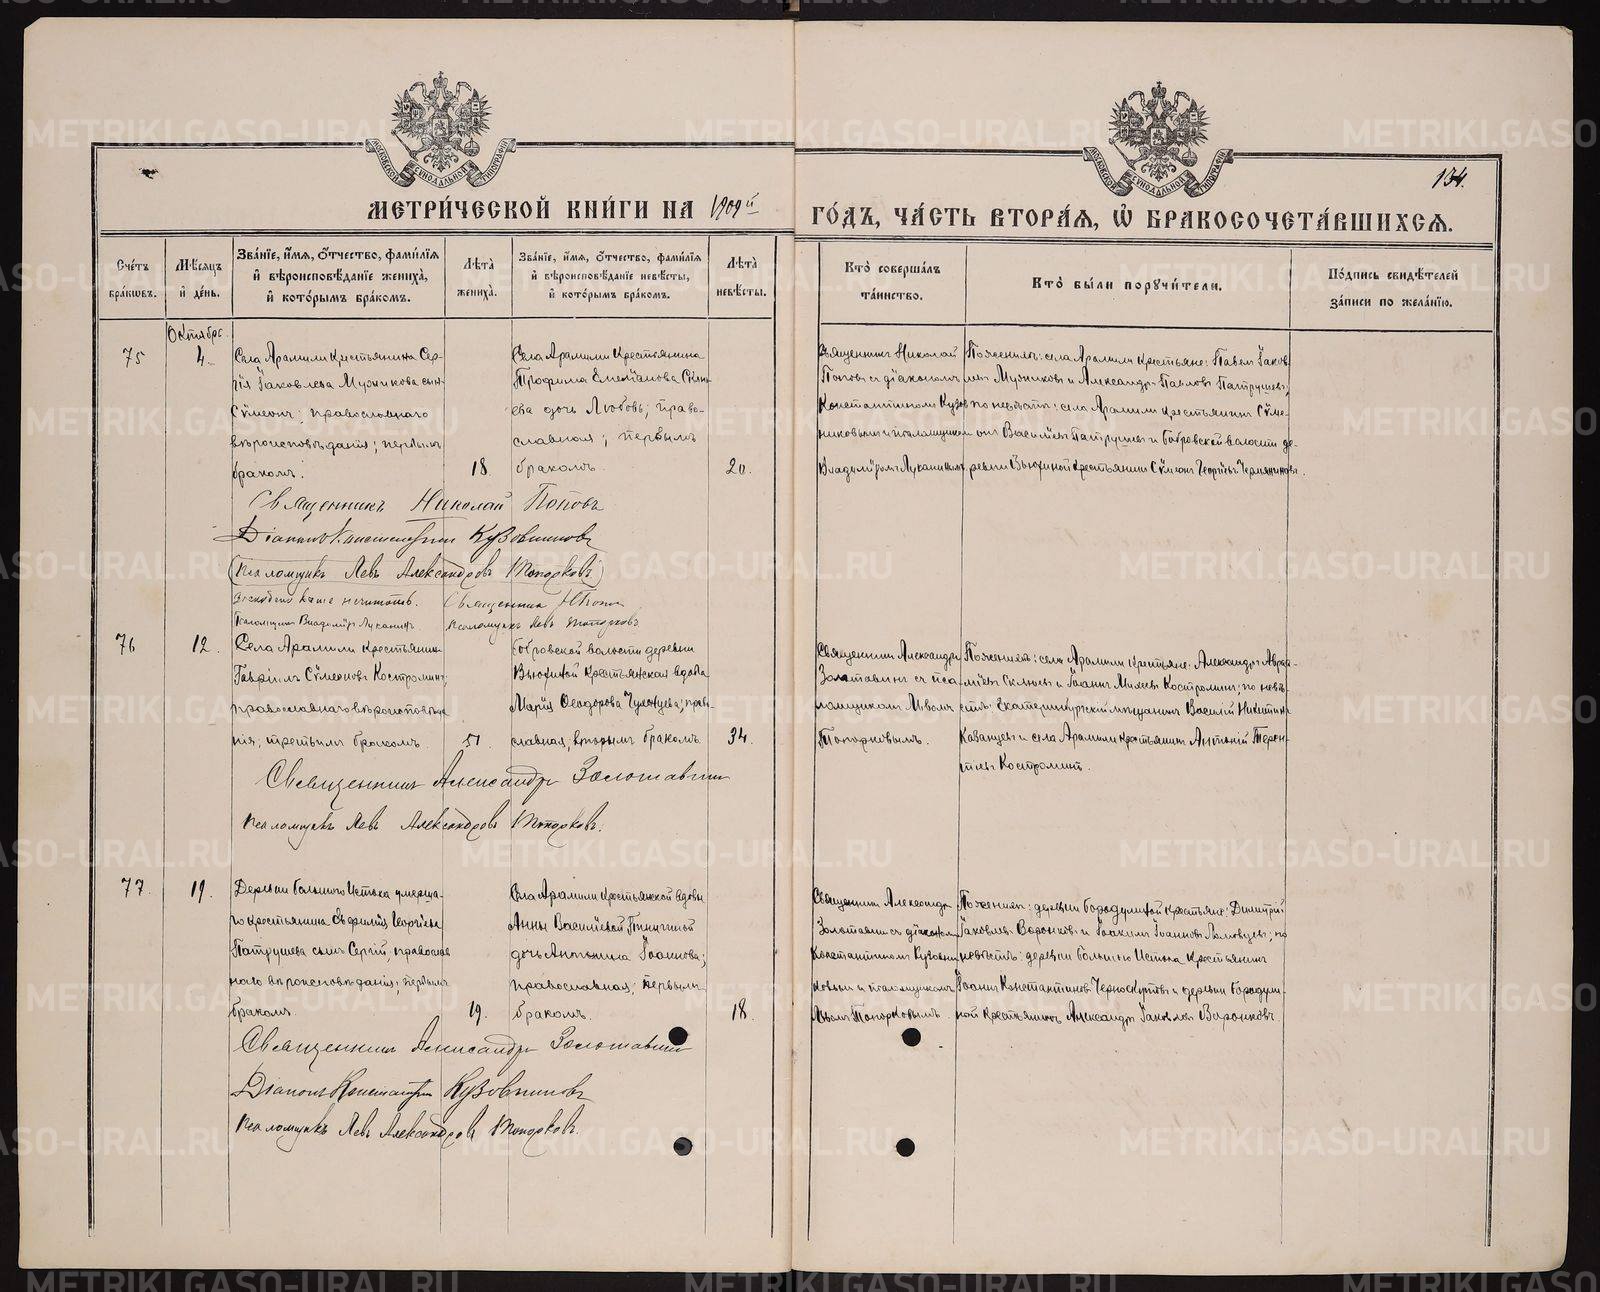 МЕТРИ́ЧЕСКОЙ КНИ́ГИ НА 1909й ГО́ДЪ, ЧА́СТЬ ВТОРА́Ѧ, Ѽ БРАКОСОЧЕТА́ВШИХСѦ.
134.
Сче́тъ бра́кѡвъ.
Мѣ́сѧцъ и҆ де́нь.
Зва́нїе, и҆́мѧ, ѻ҆́тчество, фами́лїѧ и҆ вѣроисповѣ́данїе жениха̀, и҆ кото́рымъ бра́комъ.
Лѣ́та жениха̀.
Зва́нїе, и҆́мѧ, ѻ҆́тчество, фами́лїѧ и҆ вѣроисповѣ́данїе невѣ́сты, и҆ кото́рымъ бра́комъ.
Лѣ́та невѣ́сты.
Кто̀ соверша́лъ та́инство.
Кто̀ бы́ли порꙋчи́тели.
По́дпись свидѣ́телей за́писи по жела́нїю.
Октябрь
75
4.
Села Арамили крестьянина Сер-
гія Іаковлева Музникова сынъ
Сѵмеонъ; православнаго
вѣроисповѣданія; первымъ
бракомъ.
18.
Села Арамили крестьянина
Трофима Емеліанова
дочь Любовь; право-
славная; первымъ
бракомъ.
20.
Священникъ Николай
Поповъ съ діакономъ
Константиномъ Кузов
никовымъ и псаломщикомъ
Владиміромъ Луканинымъ
По женихѣ: села Арамили крестьяне: Павелъ Іаков
левъ Музниковъ и Александръ Павловъ Патрушевъ;
по невѣстѣ: села Арамили крестьянинъ Сѵме-
онъ Васильевъ Патрушевъ и Бобровской волости де-
ревни Вьюхиной крестьянинъ Сѵмеонъ Георгіевъ
Священникъ Николай Поповъ
Діаконъ Константинъ Кузовниковъ
(Псаломщикъ Левъ Александровъ Топорковъ)
не читать. Священникъ Н Поповъ
Псаломщикъ Владиміръ Луканинъ. Псаломщикъ Левъ Топорковъ
76
12.
Села Арамили крестьянинъ
Гавріилъ Сѵмеоновъ Костроминъ;
православнаго вѣроисповѣда
нія; третьимъ бракомъ.
51.
Бобровской волости деревни
Вьюхиной крестьянская вдова
Марія Ѳеодорова; право-
славная; вторымъ бракомъ.
34.
Священникъ Александръ
Золотавинъ съ пса
ломщикомъ Львомъ
Топорковымъ.
По женихѣ: села Арамили крестьяне: Александръ Авраа-
міевъ и Іоаннъ Костроминъ; по невѣ-
стѣ: Екатеринбургскій мѣщанинъ Василій Никитинъ
Казанцевъ и села Арамили крестьянинъ Антоній Терен-
тьевъ Костроминъ.
Священникъ Александръ Золотавинъ
Псаломщикъ Левъ Александровъ Топорковъ.
77.
19.
Деревни Большого Истока умерша-
го крестьянина Георгіева
Патрушева сынъ Сергій, православ
наго вѣроисповѣданія; первымъ
бракомъ.
19.
Села Арамили крестьянской вдовы
Анны Васильевой
дочь Антонина Іоаннова;
православная; первымъ
бракомъ.
18.
Священникъ Александръ
Золотавинъ съ діакономъ
Константиномъ Кузовни
ковымъ и псаломщикомъ
Львомъ Топорковымъ.
По женихѣ: деревни Бородулиной крестьяне: Димитрій
Іаковлевъ Воронковъ и Іоакимъ Іоанновъ; по
невѣстѣ: деревни Большого Истока крестьянинъ
Іоаннъ Константиновъ Черноскутовъ и деревни Бородули-
ной крестьянинъ Александръ Іаковлевъ Воронковъ.
Священникъ Александръ Золотавинъ
Діаконъ Константинъ Кузовниковъ
Псаломщикъ Левъ Александровъ Топорковъ.
METRIKI.GASO-URAL.RU